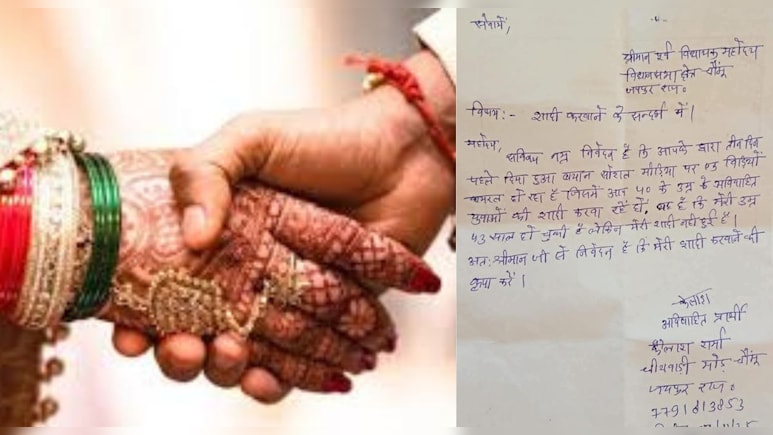 सेवामें,
श्रीमान पूर्व विधायक महोदय
विधानसभा क्षेत्र चौमूं
जयपुर राज०
विषय:- शादी करवाने के सन्दर्भ में।
महोदय,
सविनय नम्र निवेदन है कि आपके द्वारा तीन दिन
पहले दिया हुआ बयान सोशल मीडिया पर विडियो
वायरल हो रहा है जिसमें आप 40 के उम्र के अविवाहित
युवाओं की शादी करवा रहे हो, है कि मेरी उम्र
43 साल हो चुकी है लेकिन मेरी शादी नही हुई है।
अत: श्रीमान जी से निवेदन है कि मेरी शादी करवाने की
कृपा करें।
कैलाश
अविवाहित प्रार्थी
कैलाश शर्मा
चीथवाड़ी मोड़ चौमूं
जयपुर राज०
7791813853